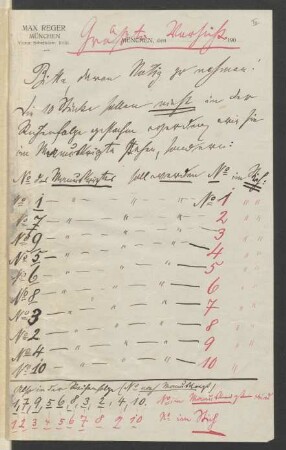 MAX REGER
MÜNCHEN
Größte Vorsicht
MÜNCHEN, DEN 190
Bitte davon Notiz zu nehmen!
Die 10 Stücke sollen nicht in der
Reihenfolge gestochen werden, wie sie
im Manuskripte stehen, sondern:
No des Manuskriptes soll werden No im Stich
No 1 — " — " — " — No 1 " "
No 7 — " — " — " — 2 " "
No 9 — " — " — " — 3 " "
No 5 — " — " — " — 4 " "
No 6 — " — " — " — 5 " "
No 8 — " — " — " — 6 " "
No 3 — " — " — " — 7 " "
No 2 — " — " — " — 8 " "
No 4 — " — " — " — 9 " "
No 10 — " — " — " — 10 " "
Also in der Reihenfolge (No nach Manuskript)
1, 7, 9, 5, 6, 8, 3, 2, 4, 10. No im Manuskript wird
1 2 3 4 5 6 7 8 9 10 No im Stich